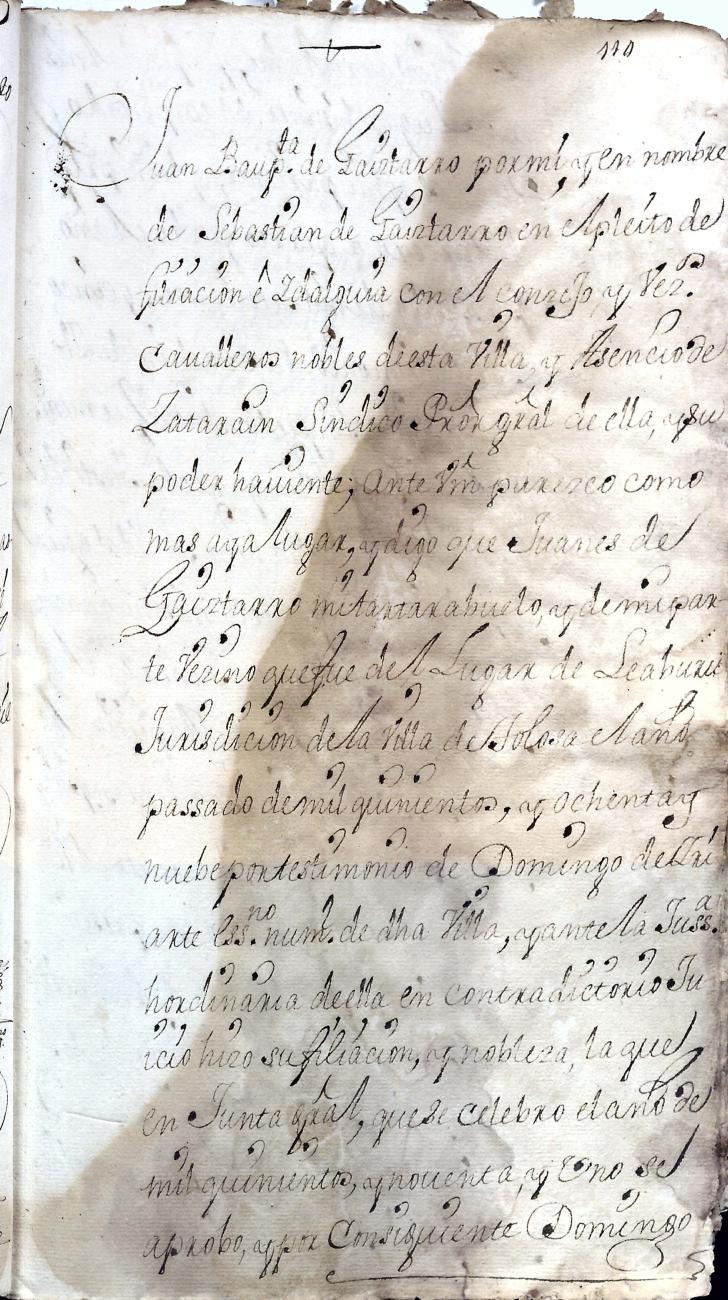 110
Juan Baup.ta de Gaiztarro por mi, y en nombre
de Sebastian de Gaiztarro en el pleito de
filiacion e Zdalguia con el conzejo, y Vez.os
Cavalleros nobles de esta Villa, y Asencio de
Zatarain Sindico Pror gral de ella, y su
poder haviente; Ante Vm parezco como
mas aya lugar, y digo que Juanes de
Gaiztarro mi tartarabuelo, y de mi par
te Vezino que fue del Lugar de Leaburu
Jurisdicion de la Villa de Tolosa el año
passado de mil quinientos, y ochenta y
nuebe por testimonio de Domingo de Uri
arte Ess.no num.l de dha Villa, y ante la Juss.a
hordinaria de ella en contradictorio Ju
icio hizo su filiacion, y nobleza, la que
en Junta gral, que se celebro el año de
mil quinientos, y noventa, y Uno se
aprobo, y por Consiguiente Domingo